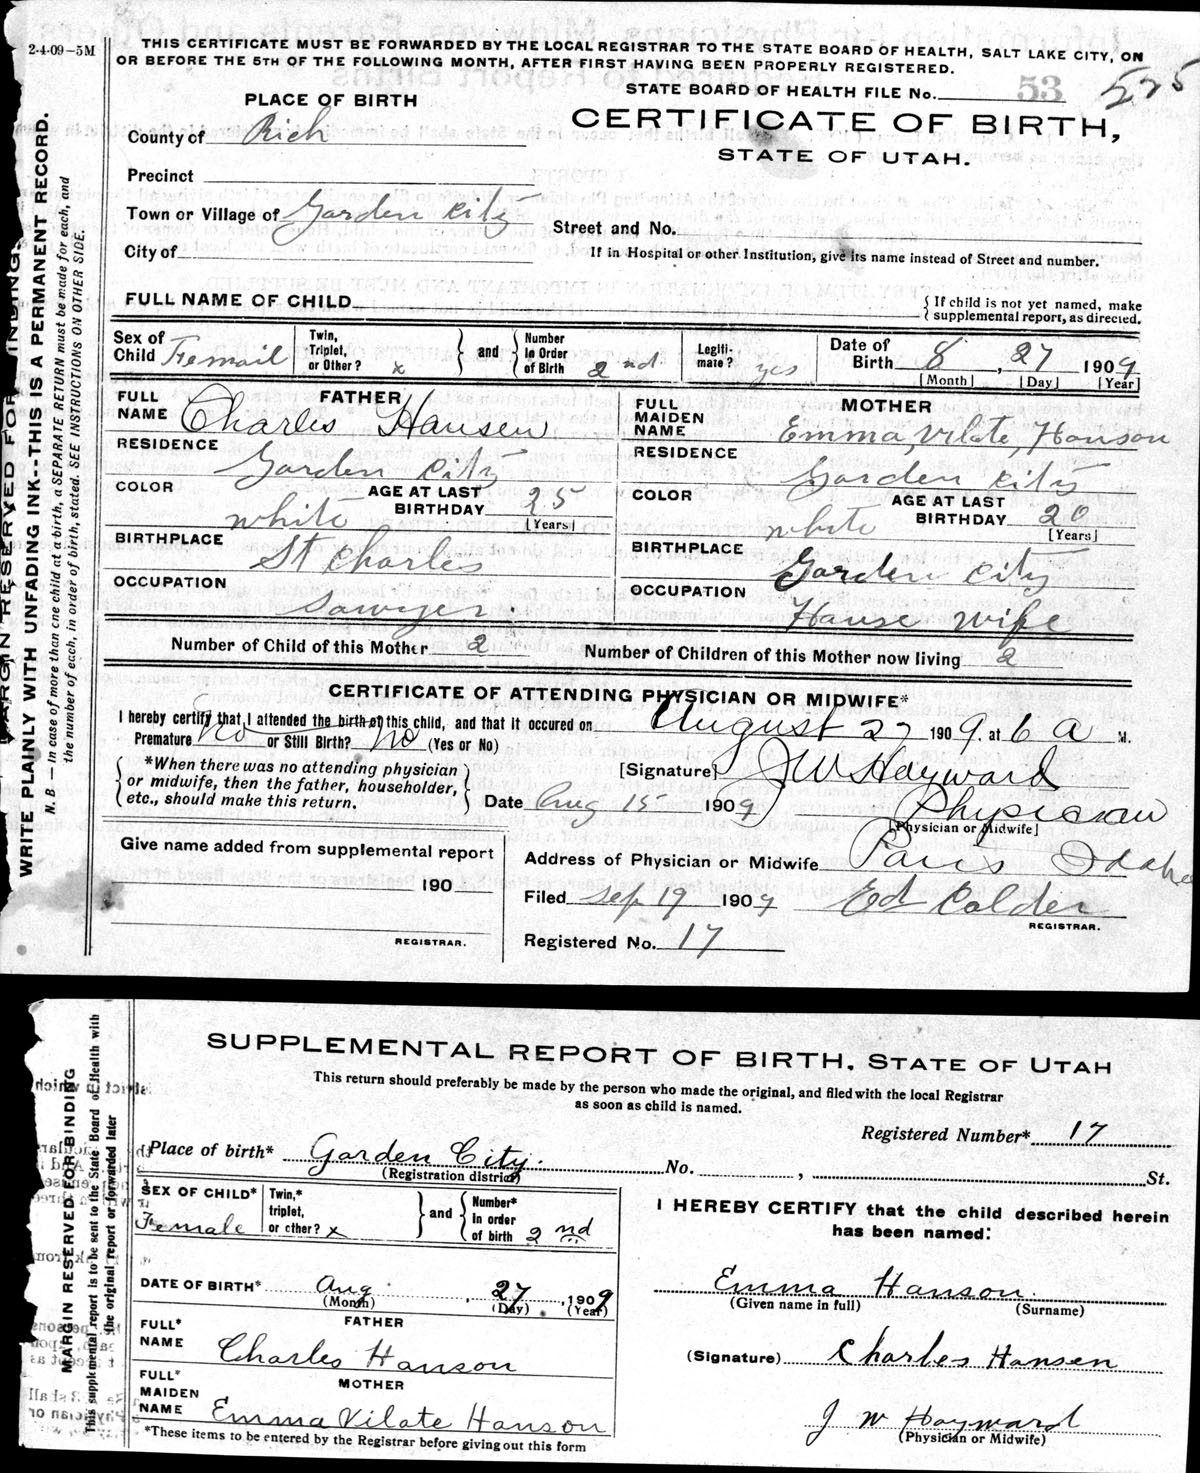 2-4-09-5M
THIS CERTIFICATE MUST BE FORWARDED BY THE LOCAL REGISTRAR TO THE STATE BOARD OF HEALTH, SALT LAKE CITY, ON
OR BEFORE THE 5TH OF THE FOLLOWING MONTH, AFTER FIRST HAVING BEEN PROPERLY REGISTERED.
STATE BOARD OF HEALTH FILE No. 53 525
PLACE OF BIRTH
CERTIFICATE OF BIRTH,
STATE OF UTAH.
County of Rich
Precinct
Town or Village of Garden City
Street and No.
City of
If in Hospital or other Institution, give its name instead of Street and number.
FULL NAME OF CHILD
{ If child is not yet named, make
supplemental report, as directed.
Sex of Child Femail
Twin, Triplet, or Other? x
and
Number in Order of Birth 2nd
Legiti-mate? yes
Date of Birth 8, 27 1909
[Month] [Day] [Year]
FATHER
FULL NAME Charles Hansen
RESIDENCE Garden City
COLOR white
AGE AT LAST BIRTHDAY 25
[Years]
BIRTHPLACE St Charles
OCCUPATION Sawyer.
MOTHER
FULL MAIDEN NAME Emma, Vilate, Hanson
RESIDENCE Garden City
COLOR white
AGE AT LAST BIRTHDAY 20
[Years]
BIRTHPLACE Garden City
OCCUPATION House wife
Number of Child of this Mother 2
Number of Children of this Mother now living 2
CERTIFICATE OF ATTENDING PHYSICIAN OR MIDWIFE*
I hereby certify that I attended the birth of this child, and that it occured on August 27 1909. at 6 A M.
Premature No or Still Birth? No (Yes or No)
*When there was no attending physician
or midwife, then the father, householder,
etc., should make this return.
[Signature] J W Hayward
Date Aug 15 1909
Physician
[Physician or Midwife]
Give name added from supplemental report
190
REGISTRAR.
Address of Physician or Midwife Paris Idaho
Filed Sep 19 1909 Ed Calder
REGISTRAR.
Registered No. 17
MARGIN RESERVED FOR BINDING.
WRITE PLAINLY WITH UNFADING INK--THIS IS A PERMANENT RECORD.
N. B — In case of more than one child at a birth, a SEPARATE RETURN must be made for each, and
the number of each, in order of birth, stated. SEE INSTRUCTIONS ON OTHER SIDE.
SUPPLEMENTAL REPORT OF BIRTH, STATE OF UTAH
This return should preferably be made by the person who made the original, and filed with the local Registrar
as soon as child is named.
Registered Number* 17
Place of birth* Garden City. No. , St.
(Registration district)
SEX OF CHILD* Female
Twin,* triplet, or other? x
and
Number* in order of birth 2nd
DATE OF BIRTH* Aug. , 27, 1909
(Month) (Day) (Year)
FATHER
FULL* NAME Charles Hanson
MOTHER
FULL* MAIDEN NAME Emma Vilate Hanson
*These items to be entered by the Registrar before giving out this form
I HEREBY CERTIFY that the child described herein
has been named:
Emma Hanson.
(Given name in full) (Surname)
(Signature) Charles Hansen
J W Hayward
(Physician or Midwife)
MARGIN RESERVED FOR BINDING
This supplemental report is to be sent to the State Board of Health with
the original report or forwarded later